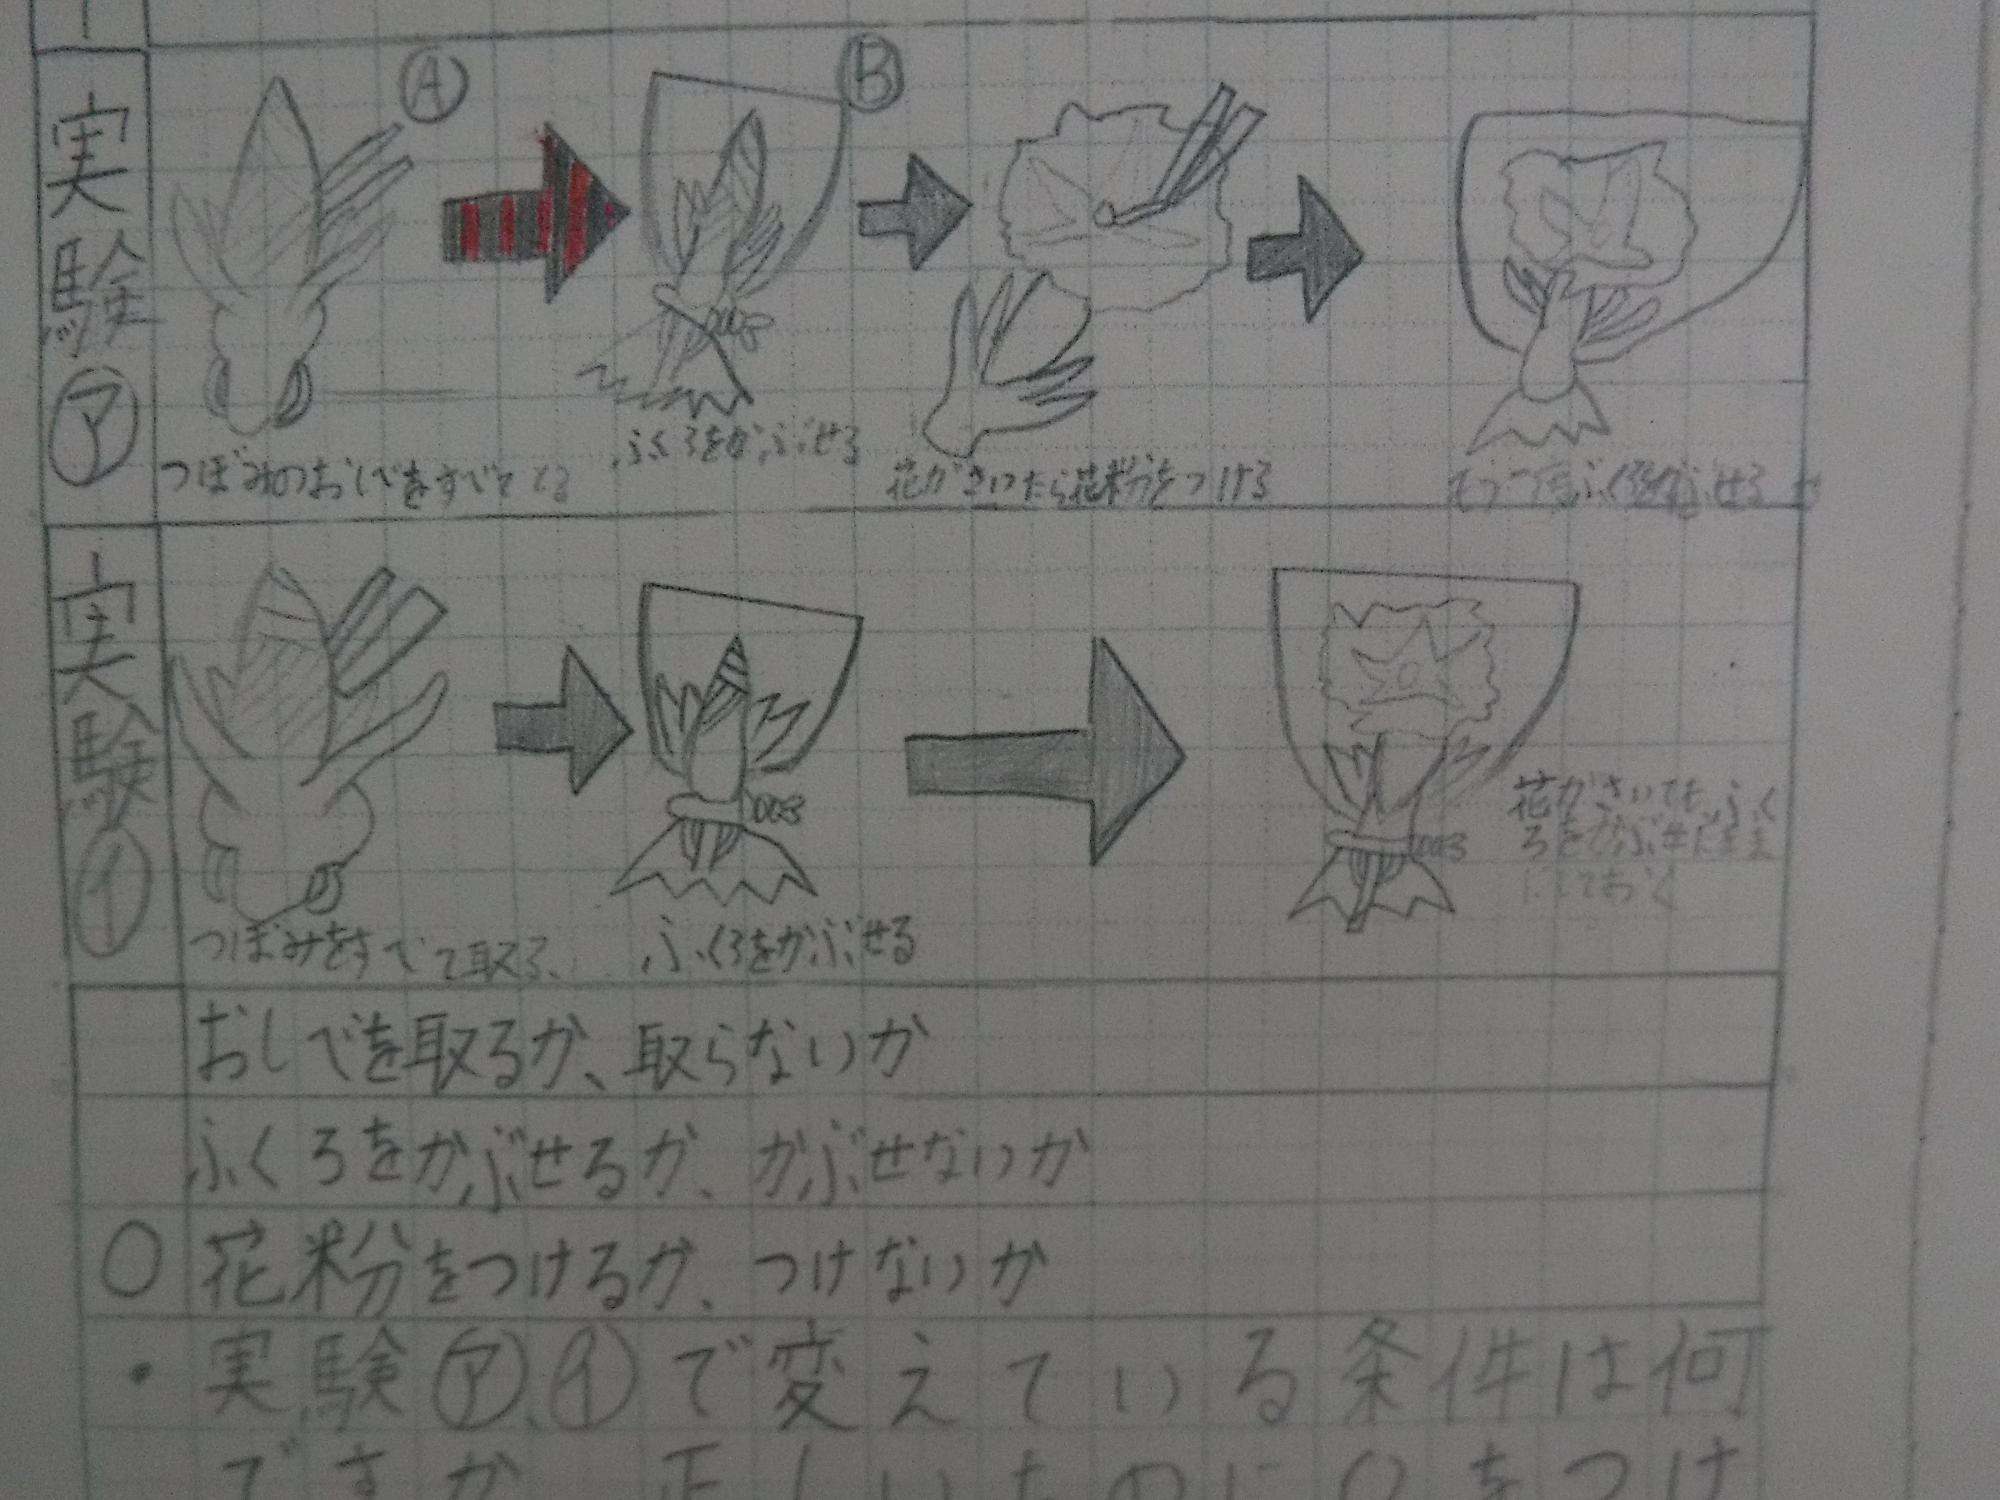 Ⓐ
Ⓑ
実験㋐
つぼみのおしべをすべてとる
ふくろをかぶせる
花がさいたら花粉をつける
もう一度ふくろをかぶせる
実験㋑
つぼみをすべて取る、
ふくろをかぶせる
花がさいても、ふく
ろをかぶせたまま
にしておく
おしべを取るか、取らないか
ふくろをかぶせるか、かぶせないか
○ 花粉をつけるか、つけないか
・実験㋐、㋑で変えている条件は何
ですか 正しいものに○をつけ